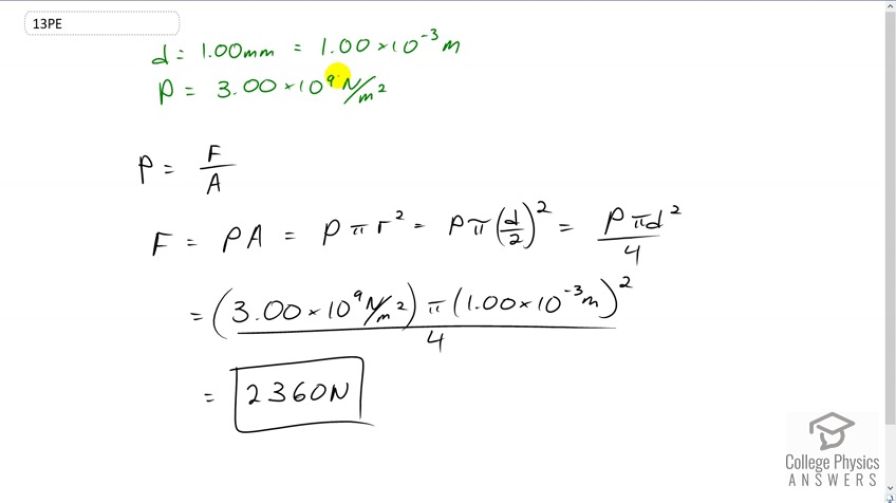 13PE
d = 1.00mm = 1.00 × 10⁻³ m
P = 3.00 × 10⁹ N/m²
P = F/A
F = PA = Pπr² = Pπ(d/2)² = Pπd²/4
= (3.00 × 10⁹ N/m²) π (1.00 × 10⁻³ m)² / 4
= 2360N
College Physics
ANSWERS